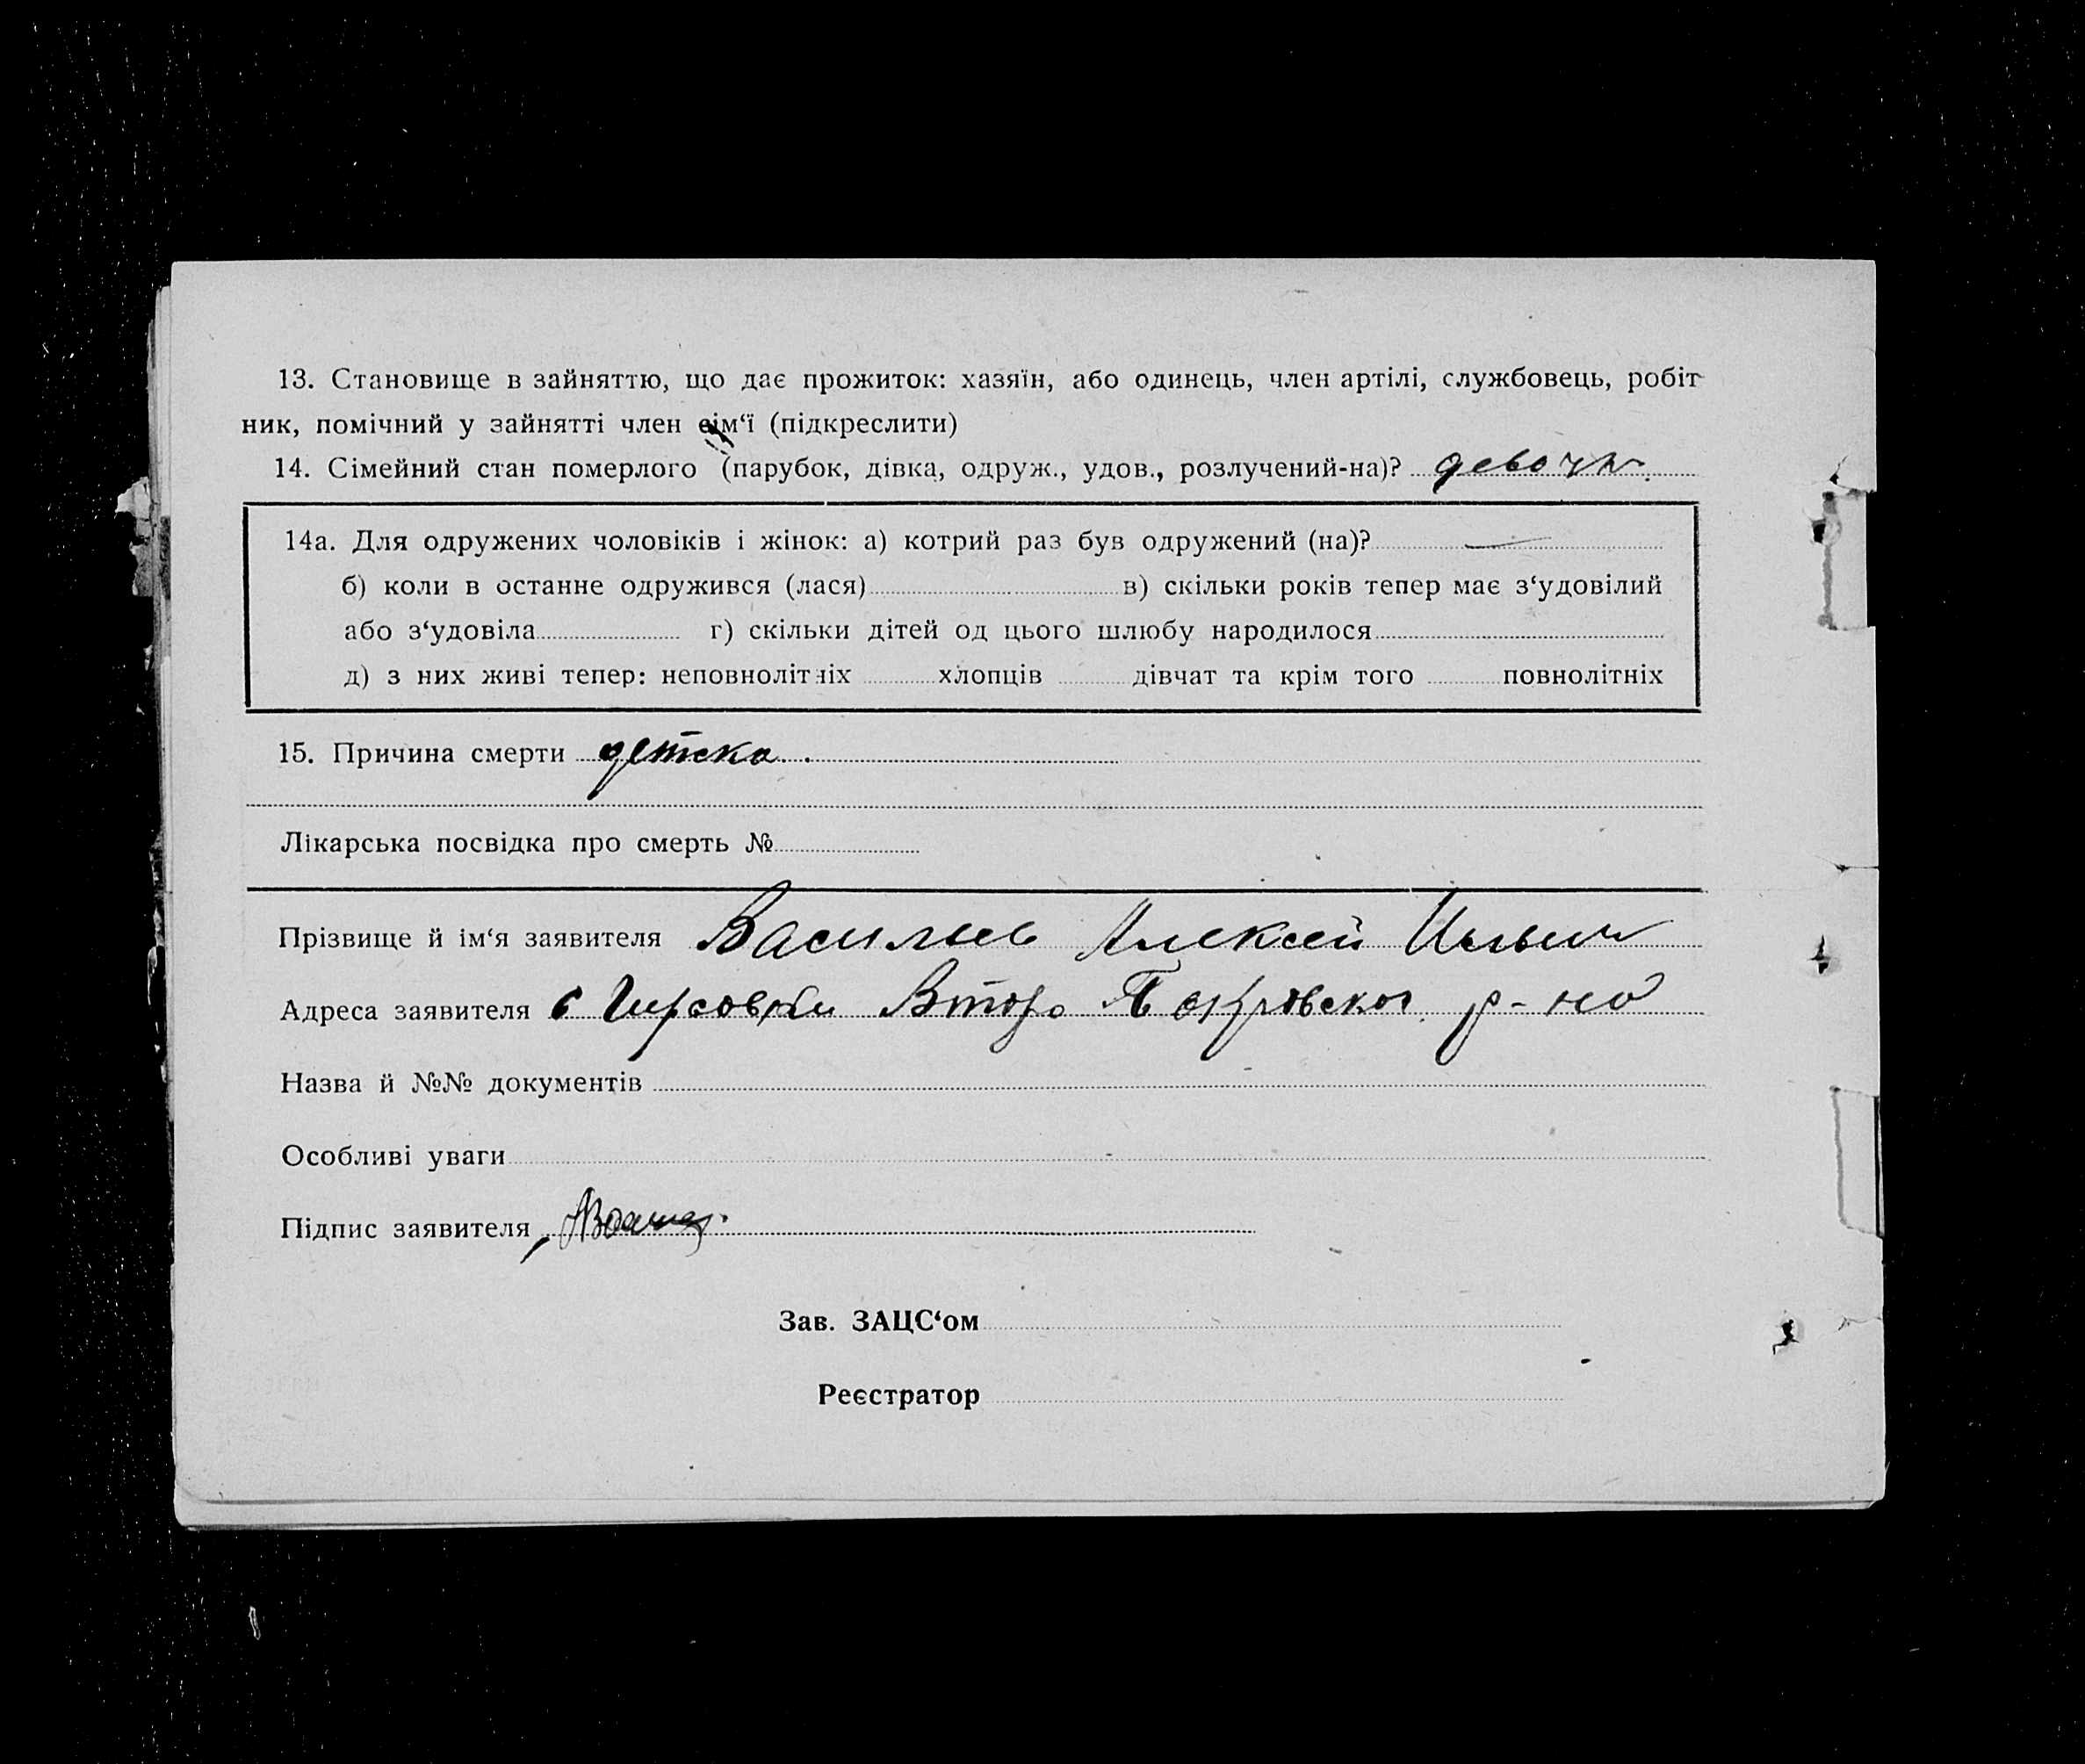 13. Становище в зайняттю, що дає прожиток: хазяїн, або одинець, член артілі, службовець, робіт-
ник, помічний у зайнятті член сім‘ї (підкреслити)
14. Сімейний стан померлого (парубок, дівка, одруж., удов., розлучений-на)? девочк
14а. Для одружених чоловіків і жінок: а) котрий раз був одружений (на)? —
б) коли в останне одружився (лася) в) скільки років тепер має з‘удовілий
або з‘удовіла г) скільки дітей од цього шлюбу народилося
д) з них живі тепер: неповнолітніх хлопців дівчат та крім того повнолітніх
15. Причина смерти детска
Лікарська посвідка про смерть №
Прізвище й ім‘я заявителя Васильев Алексей Ильич
Адреса заявителя с Второ Покровског р-на
Назва й №№ документів
Особливі уваги
Підпис заявителя
Зав. ЗАЦС‘ом
Реєстратор